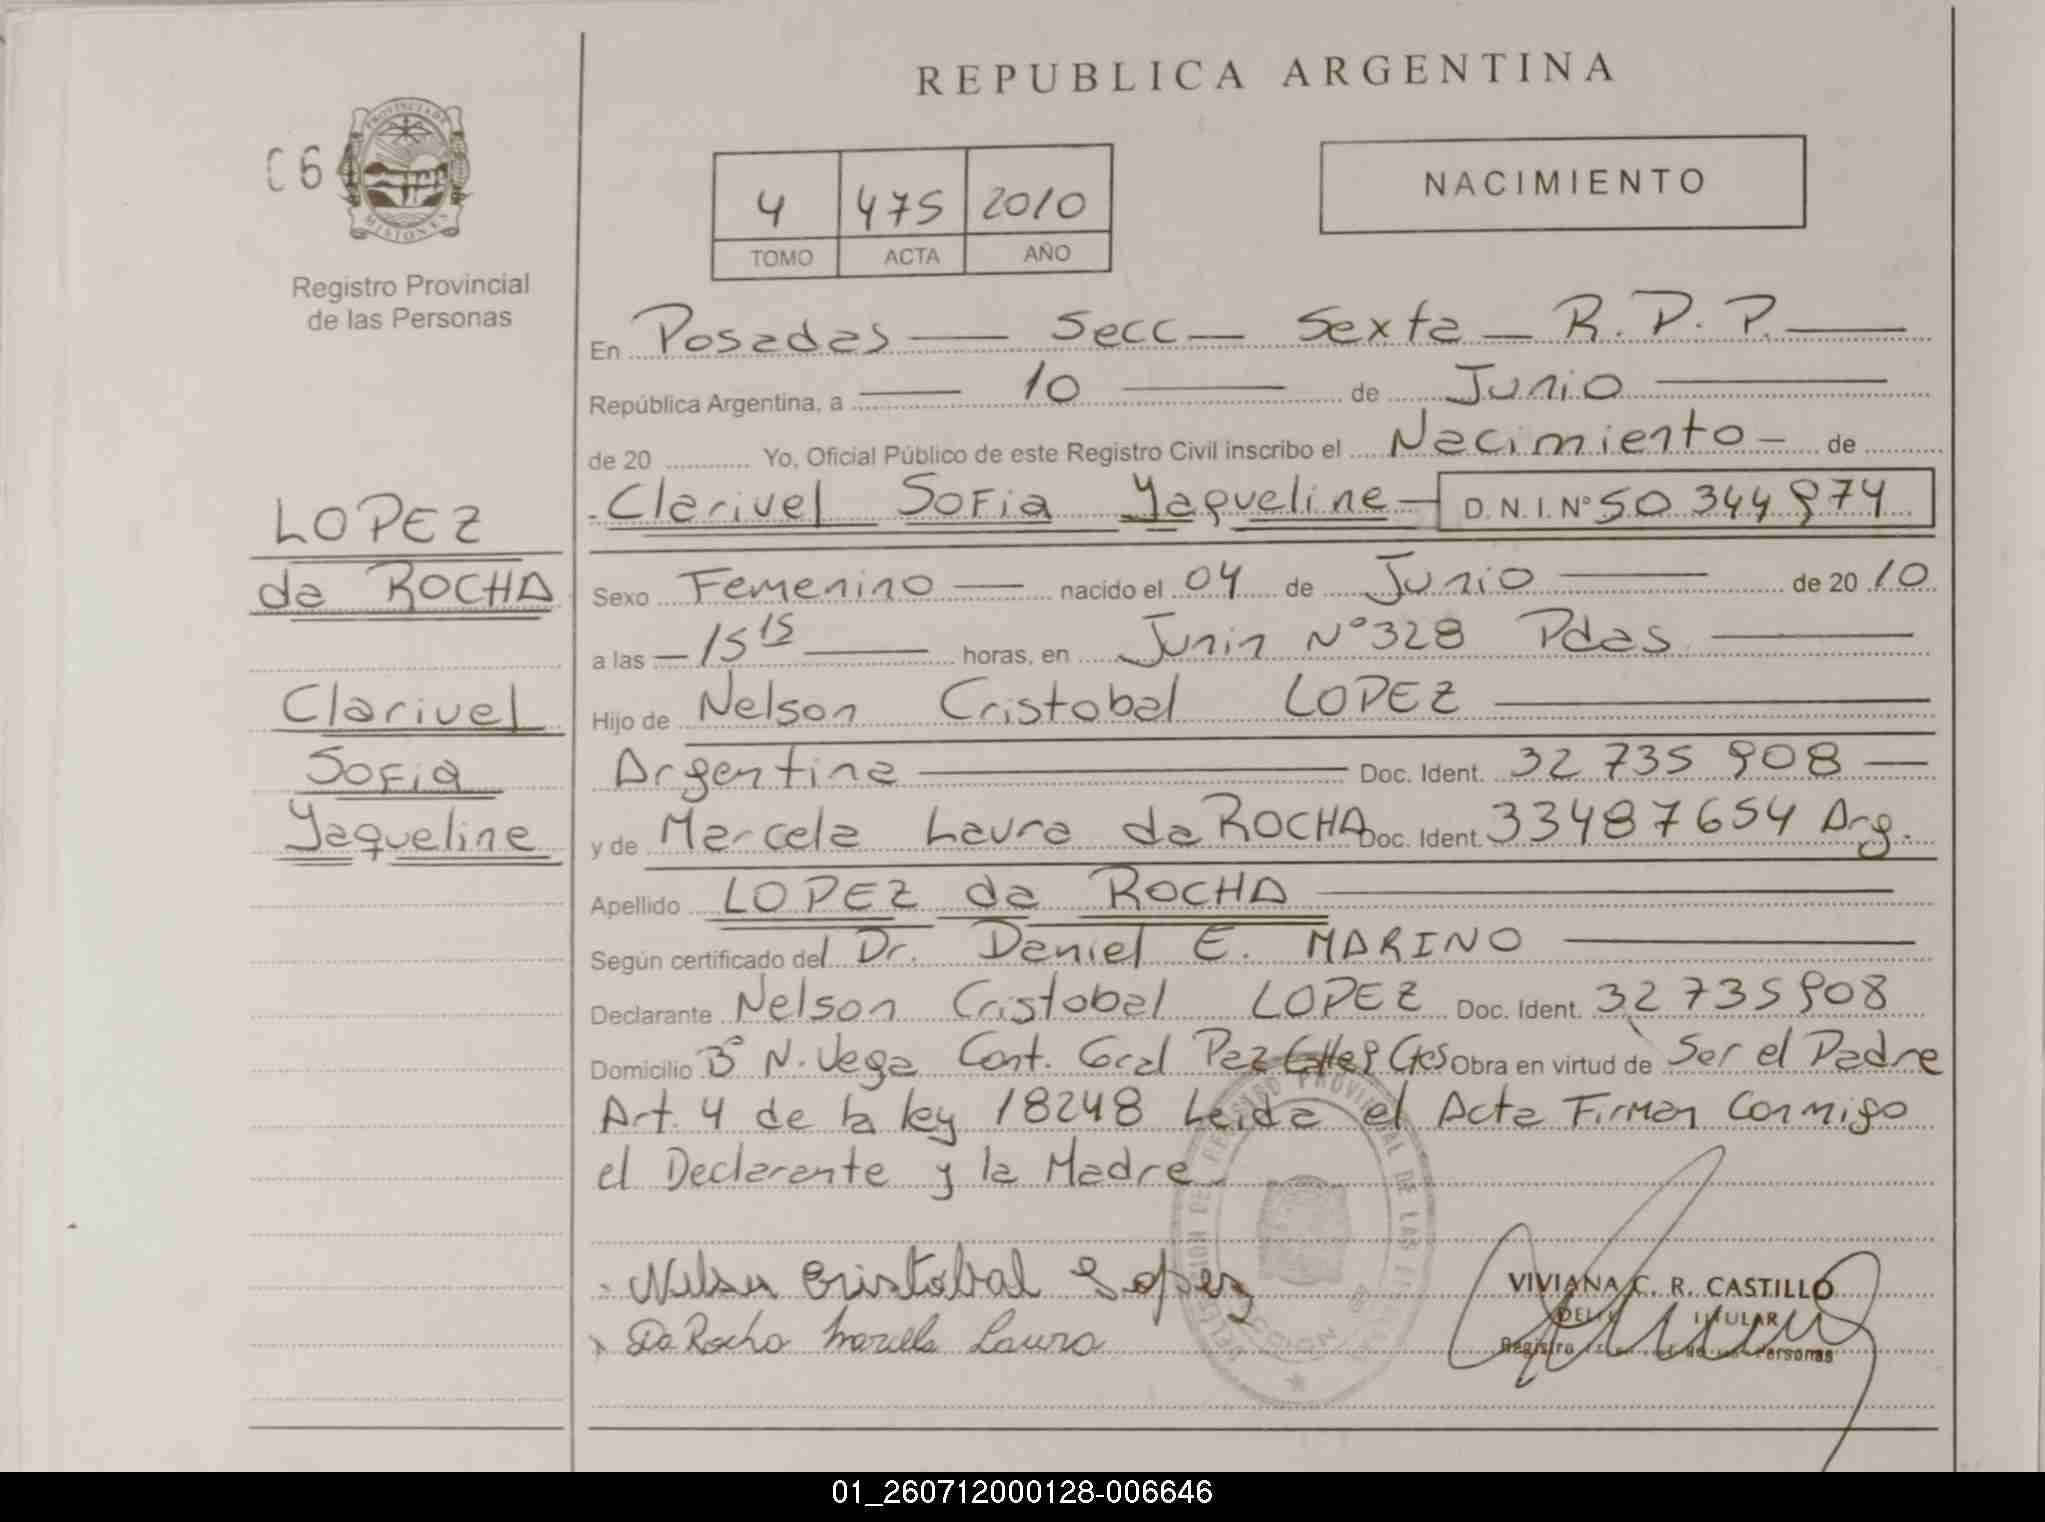 REPUBLICA ARGENTINA
C 6
PROVINCIA DE MISIONES
Registro Provincial
de las Personas
4 475 2010
TOMO ACTA AÑO
NACIMIENTO
En Posadas — Secc — Sexta — R. P. P. —
República Argentina, a — 10 — de Junio —
de 20 ............ Yo, Oficial Público de este Registro Civil inscribo el Nacimiento — de
Clarivel Sofia Yaqueline — D.N.I. Nº 50 344 974
Sexo Femenino — nacido el 04 de Junio — de 2010
a las — 15 15 — horas, en Junin Nº 328 Pdas —
Hijo de Nelson Cristobal LOPEZ —
Argentina — Doc. Ident. 32 735 908 —
y de Marcela Laura da ROCHA Doc. Ident. 33487654 Arg.
Apellido LOPEZ da ROCHA —
Según certificado del Dr. Daniel E. MARINO —
Declarante Nelson Cristobal LOPEZ Doc. Ident. 32 735 908
Domicilio Bº N. Vega Cont. Gral Paz Obra en virtud de Ser el Padre
Art. 4 de la ley 18248 Leida el Acta Firman Conmigo
el Declarante y la Madre
Nelson Cristobal Lopez
Da Rocha Marcela Laura
VIVIANA C. R. CASTILLO
TITULAR
Registro Personas
LOPEZ
da ROCHA
Clarivel
Sofia
Yaqueline
01_260712000128-006646